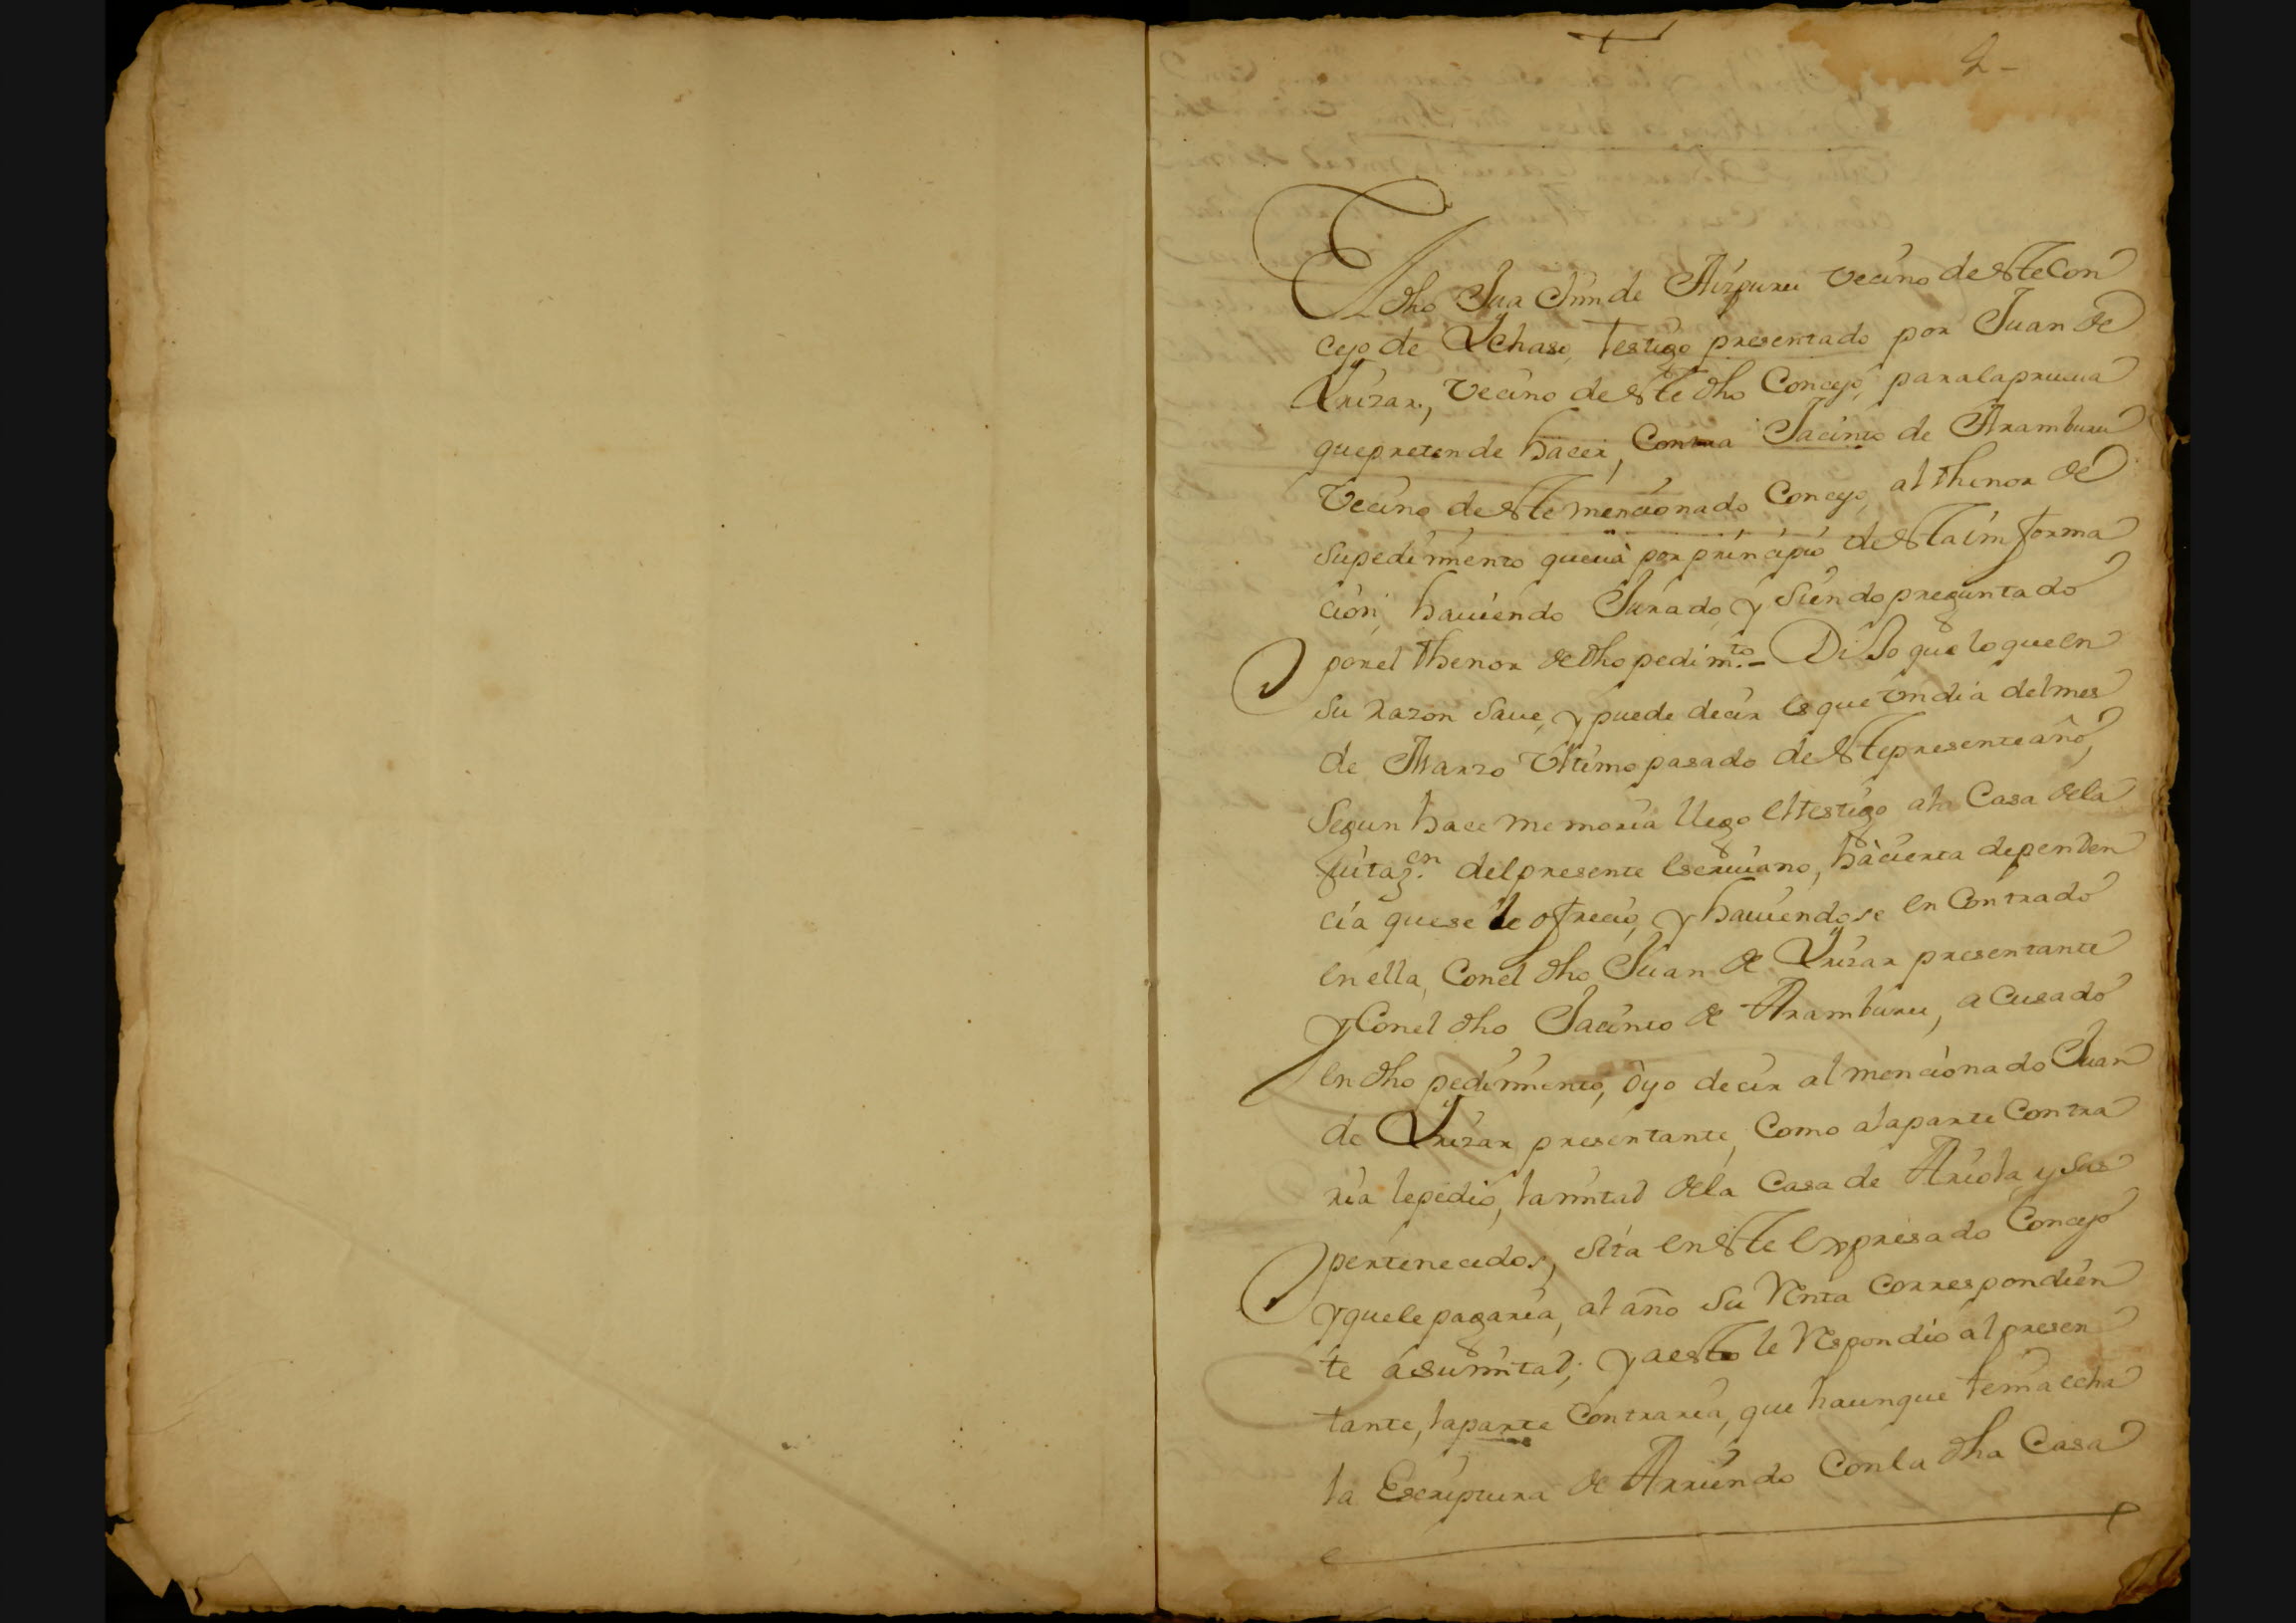 2-
El dho Jua Jnn de Aizpuru vecino de este Con
cejo de Ychaso, testigo presentado por Juan de
Yrizar, vecino de este dho Concejo, para la prueua
que pretende hacer, Contra Jacinto de Aramburu
Vecino de este mencionado Concejo, al thenor de
su pedimiento que uà por principio de esta imforma
ción, hauiendo Jurado, y siendo preguntado
por el thenor de dho pedim.to - Dixo que lo que en
su razon saue, y puede decir es que Vn dia del mes
de Marzo Vltimo pasado de este presente año,
Segun hace memoria llego el testigo a la Casa de la
uitaz.on del presente escriuano, hà cierta dependen
cia que se le ofrecio, y hauiendose en Contrado
en ella, Con el dho Juan de Yrizar presentante
y Con el dho Jacinto de Aramburu, a Cusado
en dho pedimiento, òyo decir al mencionado Juan
de Yrizar presentante, Como a la parte Contra
ria le pedio, la mitad de la Casa de Ariola, y sus
pertenecidos, sita en este expresado Concejo
y que le pagaria, al año su Renta Correspondien
te à su mitad; y a esto le Respondio al presen
tante, la parte Contraria, que haunque tenia echa
la Escriptura de Arriendo Con la dha Casa